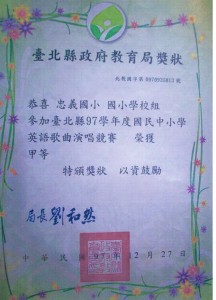 臺北縣政府教育局獎狀
恭喜 忠義國小 國小學校組
參加臺北縣97學年度國民中小學
英語歌曲演唱競賽 榮獲
甲等
特頒獎狀 以資鼓勵
局長 劉和然
中華民國 97 年 12 月 27 日